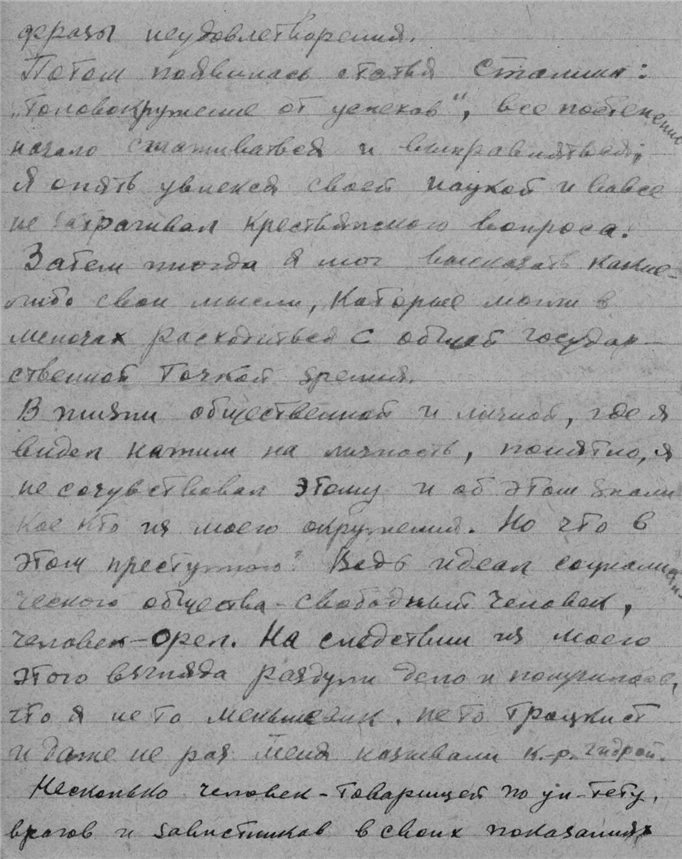 фразы неудовлетворения.
Потом появилась статья Сталина:
„Головокружение от успехов", все постепенно
начало сглаживаться и выправляться;
Я опять увлекся своей наукой и вовсе
не затрагивал крестьянского вопроса.
Затем иногда я мог высказать какие-
либо свои мысли, которые могли в
мелочах расходиться с общей государ-
ственной точкой зрения.
В жизни общественной и личной, где я
видел нажим на личность, понятно, я
не сочувствовал этому и об этом знали
кое кто из моего окружения. Но что в
этом преступного? Ведь идеал социалисти-
ческого общества - свободный человек,
человек-орел. На следствии из моего
этого взгляда раздули дело и получилось,
что я не то меньшевик, не то троцкист
и даже не раз меня называли к.-р. гидрой.
Несколько человек-товарищей по ун-тету,
врагов и завистников в своих показаниях